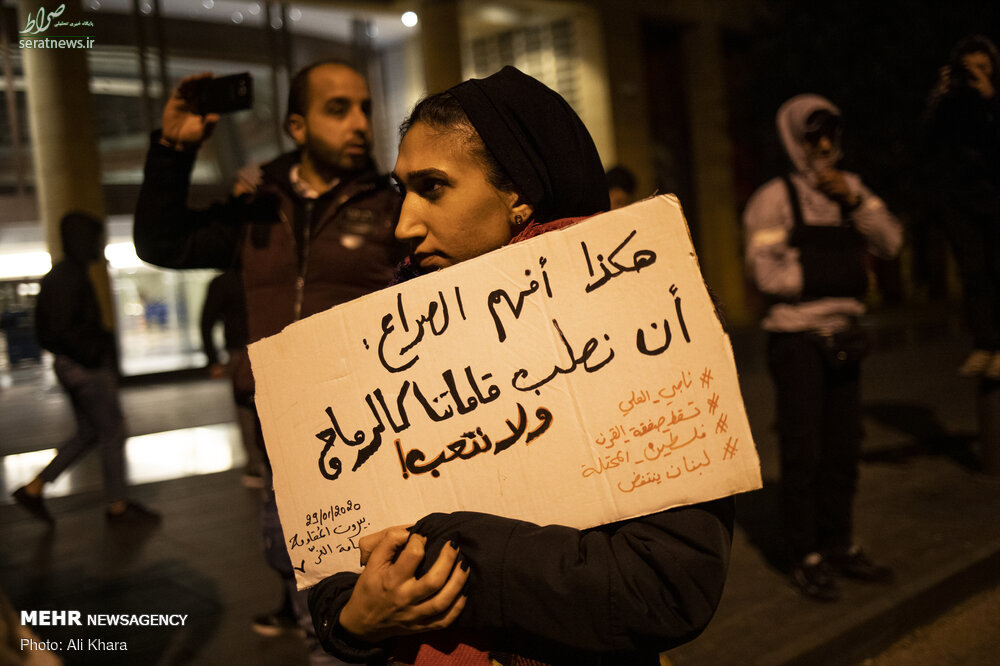 صراط
پایگاه خبری تحلیلی
seratnews.ir
هكذا أفهم الصراع:
أن نصلب قاماتنا كالرماح
ولا نتعب!
#ناجي_العلي
#تسقط صفقة القرن
#فلسطين_المحتلة
#لبنان ينتفض
29/01/2020
بيروت المقاومة
MEHR NEWSAGENCY
Photo: Ali Khara